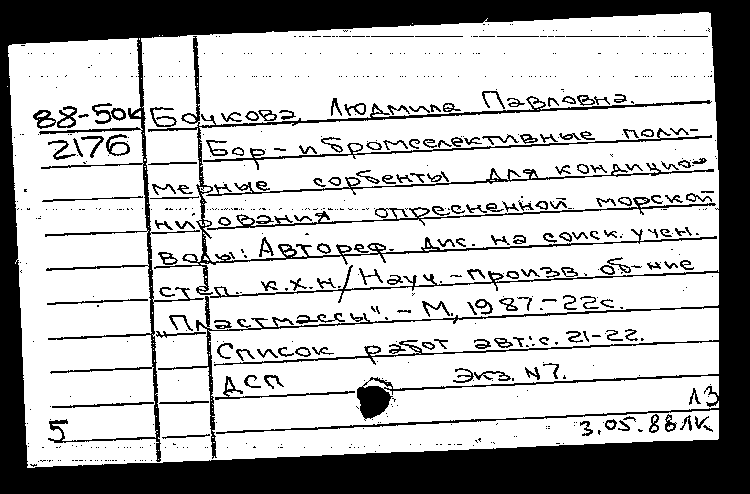 88-50к Бочкова, Людмила Павловна.
2176 Бор- и бромселективные поли-
мерные сорбенты для кондицио-
нирования опресненной морской
воды: Автореф. дис. на соиск. учен.
степ. к.х.н./Науч.-произв. об-ние
„Пластмассы".-М, 1987.-22с.
Список работ авт.: с. 21-22.
ДСП Экз. N7.
5 ЛЗ
3.05.88ЛК